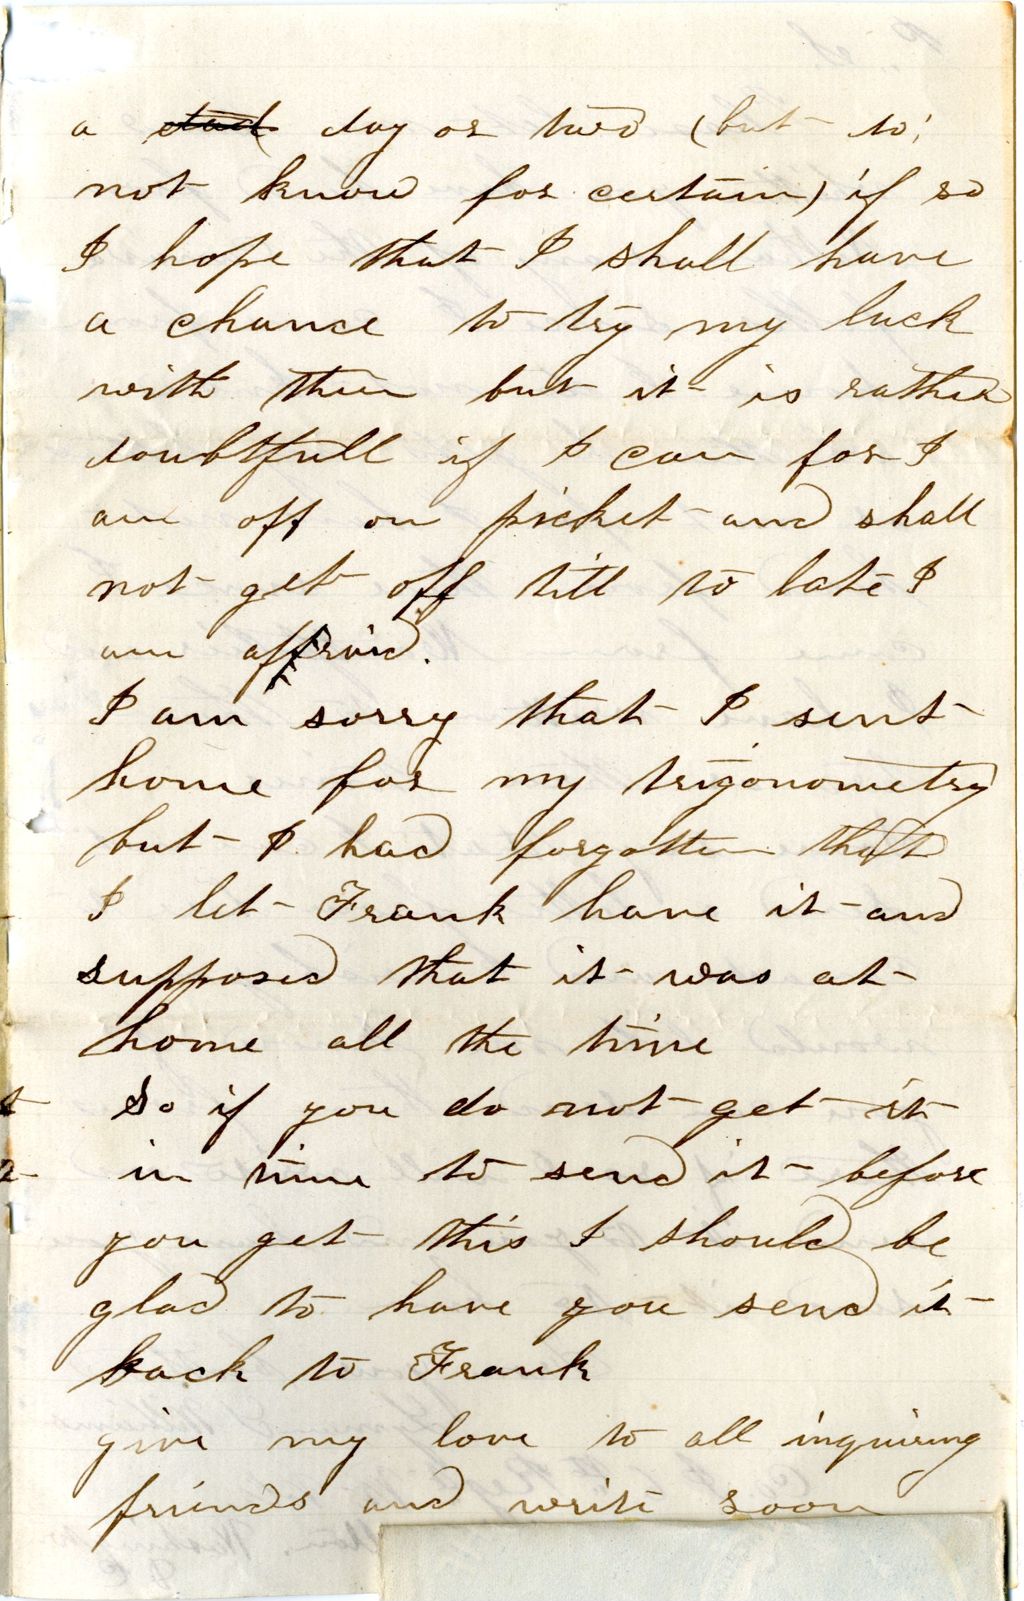 a day or two (but do
not know for certain) if so
I hope that I shall have
a chance to try my luck
with them but it is rather
doubtfull if I can for I
am off on picket and shall
not get off till to late I
am affraid.
I am sorry that I sent
home for my trigonometry
but I had forgotten that
I let Frank have it and
supposed that it was at
home all the time
So if you do not get it
in time to send it before
you get this I should be
glad to have you send it
back to Frank
give my love to all inquiring
friends and write soon